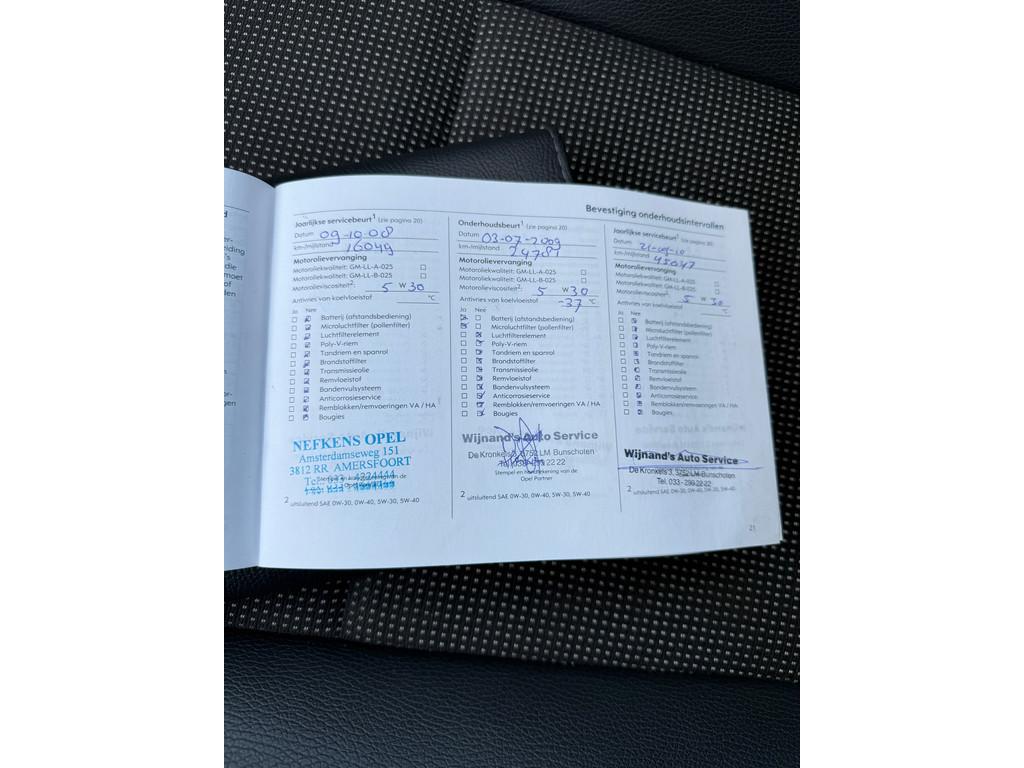 Bevestiging onderhoudsintervallen
Jaarlijkse servicebeurt¹ (zie pagina 20)
Datum 09-10-08
km-/mijlstand 16049
Motorolievervanging
Motoroliekwaliteit: GM-LL-A-025
Motoroliekwaliteit: GM-LL-B-025
Motorolieviscositeit²: 5 W 30
Antivries van koelvloeistof °C
Ja Nee
Batterij (afstandsbediening)
Microluchtfilter (pollenfilter)
Luchtfilterelement
Poly-V-riem
Tandriem en spanrol
Brandstoffilter
Transmissieolie
Remvloeistof
Bandenvulsysteem
Anticorrosieservice
Remblokken/remvoeringen VA / HA
Bougies
NEFKENS OPEL
Amsterdamseweg 151
3812 RR AMERSFOORT
2 uitsluitend SAE 0W-30, 0W-40, 5W-30, 5W-40
Onderhoudsbeurt¹ (zie pagina 20)
Datum 03-07-2009
km-/mijlstand 24781
Motorolievervanging
Motoroliekwaliteit: GM-LL-A-025
Motoroliekwaliteit: GM-LL-B-025
Motorolieviscositeit²: 5 W 30
Antivries van koelvloeistof -37 °C
Ja Nee
Batterij (afstandsbediening)
Microluchtfilter (pollenfilter)
Luchtfilterelement
Poly-V-riem
Tandriem en spanrol
Brandstoffilter
Transmissieolie
Remvloeistof
Bandenvulsysteem
Anticorrosieservice
Remblokken/remvoeringen VA / HA
Bougies
Wijnand's Auto Service
De Kronkels 3, 3752 LM Bunschoten
Stempel en handtekening van de
Opel Partner
2 uitsluitend SAE 0W-30, 0W-40, 5W-30, 5W-40
Jaarlijkse servicebeurt¹ (zie pagina 20)
Datum
km-/mijlstand 45047
Motorolievervanging
Motoroliekwaliteit: GM-LL-A-025
Motoroliekwaliteit: GM-LL-B-025
Motorolieviscositeit²: 5 W 30
Antivries van koelvloeistof °C
Ja Nee
Batterij (afstandsbediening)
Microluchtfilter (pollenfilter)
Luchtfilterelement
Poly-V-riem
Tandriem en spanrol
Brandstoffilter
Transmissieolie
Remvloeistof
Bandenvulsysteem
Anticorrosieservice
Remblokken/remvoeringen VA / HA
Bougies
Wijnand's Auto Service
De Kronkels 3, 3752 LM Bunschoten
Tel. 033 - 299 22 22
2 uitsluitend SAE 0W-30, 0W-40, 5W-30, 5W-40
21